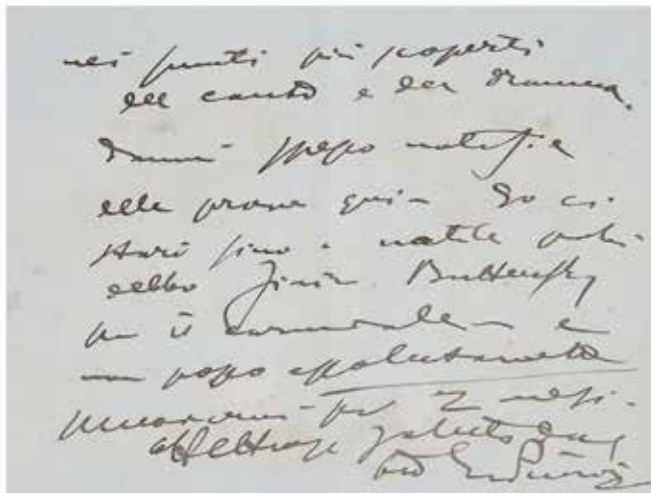 nei punti più scoperti
del canto e del dramma.
Dammi spesso notizie
delle prove qui - Io ci
starò fino a natale poi
debbo finir Butterfly
per il carnevale - e
non posso assolutamente
muovermi - per 2 mesi.
affettuosi saluti dal